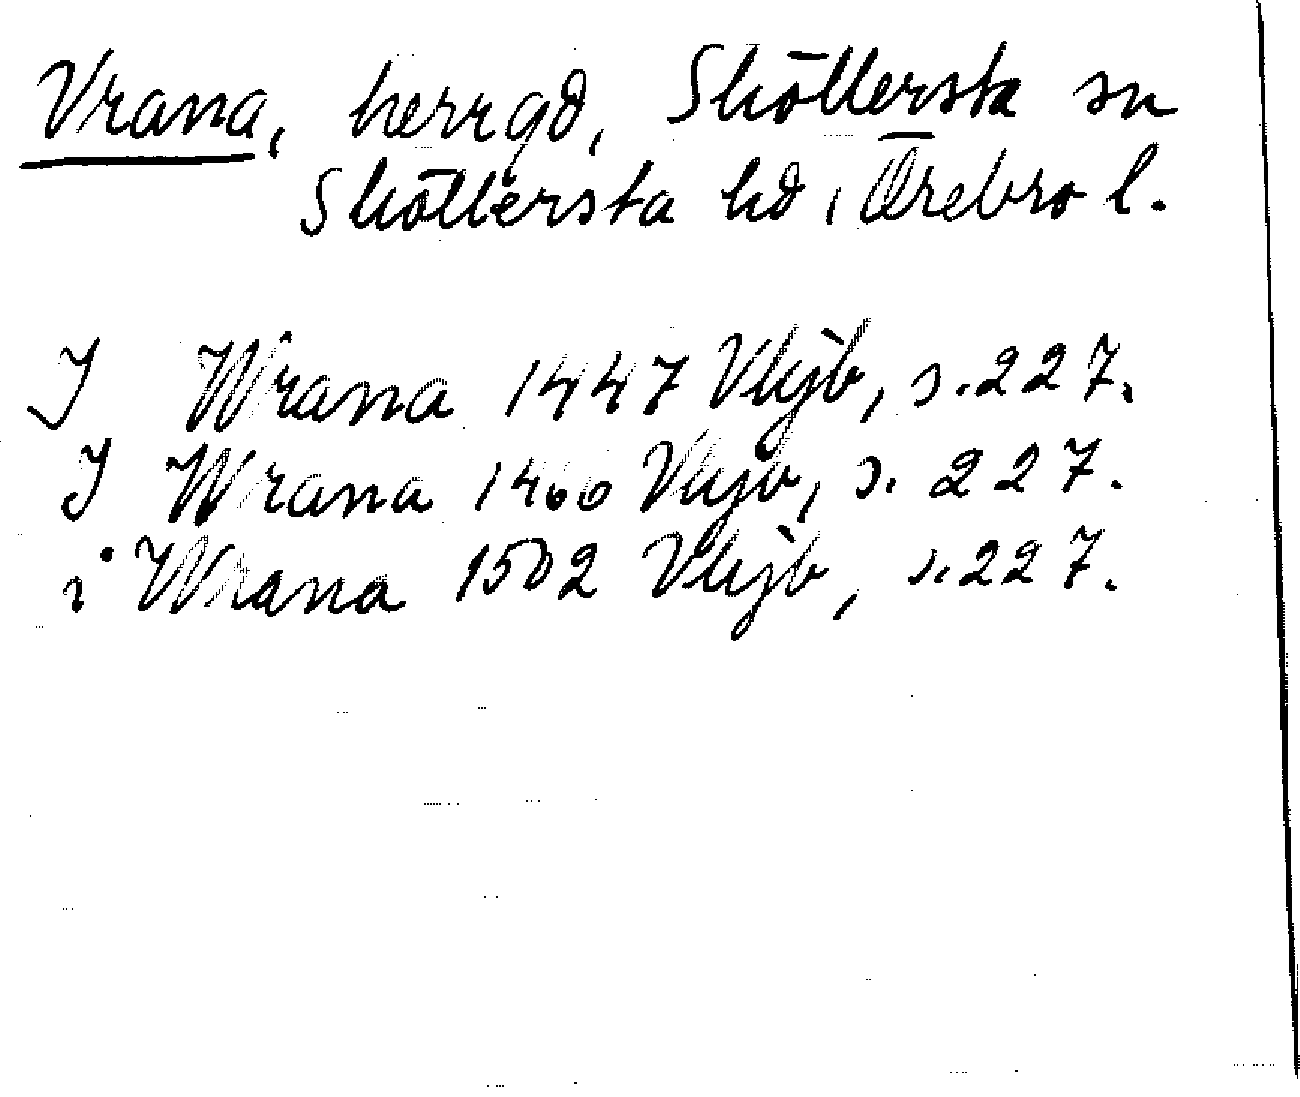 Vrana, herrgd, Sköllersta sn
Sköllersta hd, Örebro l.
I Wrana 1447 Vkjb, s. 227.
I Wrana 1460 Vkjb, s. 227.
i Wrana 1502 Vkjb, s. 227.